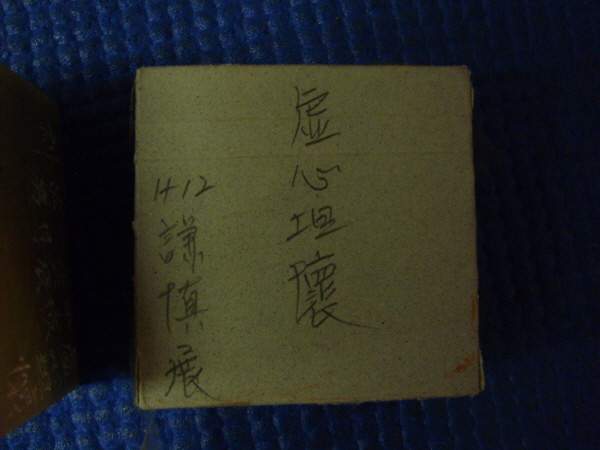 虛心坦懷
H-12
謙慎展